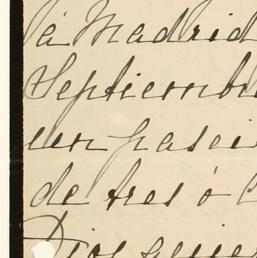 á Madrid
Septiembr
un pasei
de tres ó
Dios quie